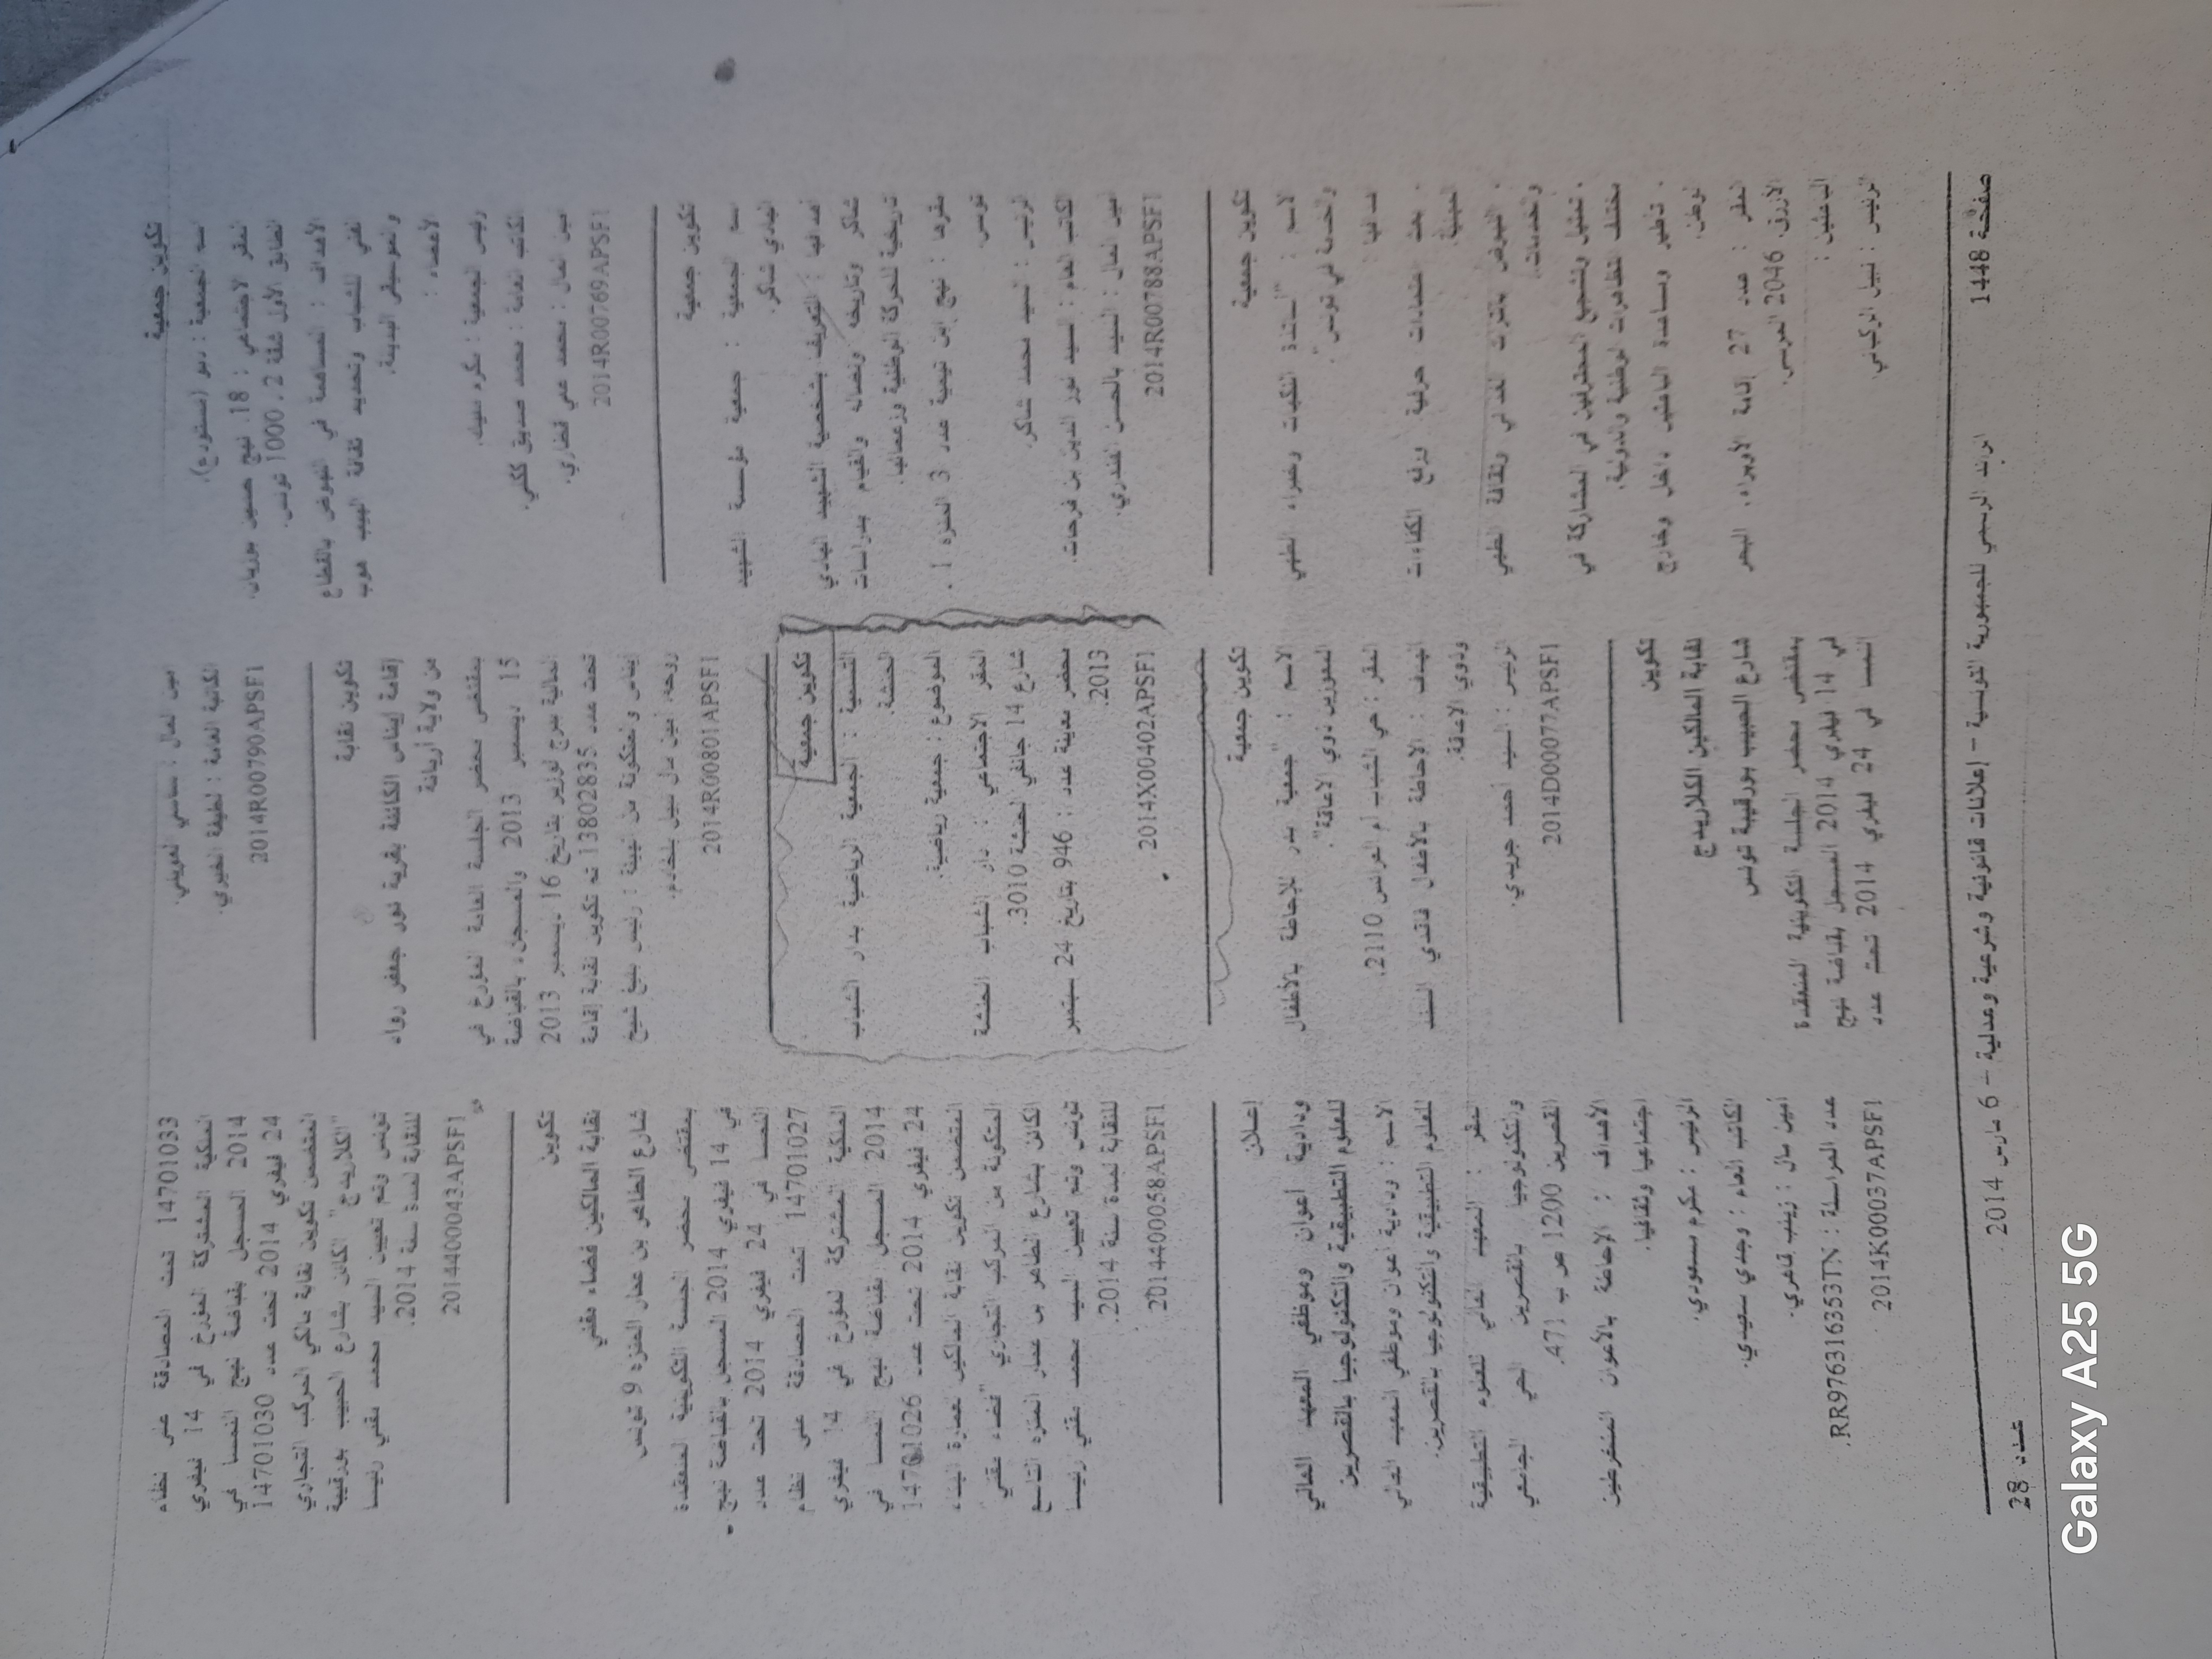 تكوين جمعية
اسم الجمعية : دبو (مستودع).
المقر الاجتماعي : 18، نهج حسين بوزيان،
الطابق الأول شقة 2، 1000 تونس.
الأهداف : المساهمة في النهوض بالقطاع
الفني للشباب وتحديد ثقافة الهيب هوب
والموسيقى البديلة.
الأعضاء :
رئيس الجمعية : مكرم
الكاتب العامة : محمد صديق
أمين المال : محمد علي
2014R00769APSF1
تكوين جمعية
اسم الجمعية : جمعية مؤسسة الشهيد
الهادي شاكر.
أهدافها : التعريف بشخصية الشهيد الهادي
شاكر وتاريخه ونضاله والقيام بدراسات
تاريخية للحركة الوطنية وزعمائها.
مقرها : نهج ابن تيمية عدد 3 المنزه 1،
تونس.
الرئيس : السيد محمد شاكر.
الكاتب العام : السيد نور الدين بن فرحات.
أمين المال : السيد بالحسن الفندري.
2014R00788APSF1
تكوين جمعية
الاسم : "أساتذة النكهات وخبراء الطهي
والخدمة في تونس".
أهدافها :
. بعث حرفية ورفع الكفاءات
المهنية.
. النهوض بالتراث الغذائي وثقافة الطهي
والخدمات.
. تمثيل وتشجيع المحترفين في المشاركة في
مختلف التظاهرات الوطنية والدولية.
. تأطير ومساعدة الباعثين داخل وخارج
الوطن.
المقر : عدد 27 إقامة الأوبيرا، البحر
الأزرق، 2046 المرسى.
الباعثين :
الرئيس : نبيل الركباني.
أمين المال : سامي العويني.
الكاتبة العامة : لطيفة الخيري.
2014R00790APSF1
تكوين نقابة
إقامة إيناس الكائنة بقرية نور جعفر رواد
من ولاية أريانة
بمقتضى محضر الجلسة العامة المؤرخ في
15 ديسمبر 2013 والمسجل، بالقباضة
المالية ببرج لوزير بتاريخ 16 ديسمبر 2013
تحت عدد 13802835 تم تكوين نقابة إقامة
إيناس والمتكونة من الهيئة : رئيس بليغ شيخ
روحه، أمين مال نبيل بلخادم.
2014R00801APSF1
تكوين جمعية
التسمية : الجمعية الرياضية بدار الشباب
الحنشة.
الموضوع : جمعية رياضية.
المقر الاجتماعي : دار الشباب الحنشة
شارع 14 جانفي الحنشة 3010.
محضر معاينة عدد : 946 بتاريخ 24 سبتمبر
2013.
2014X00402APSF1
تكوين جمعية
الاسم : "جمعية بدر للإحاطة بالأطفال
المعوزين ذوي الإعاقة".
المقر : حي الشباب أم العرائس 2110.
الهدف : الإحاطة بالأطفال فاقدي السند
وذوي الإعاقة.
الرئيس : السيد أحمد جريدي.
2014D00077APSF1
تكوين
نقابة المالكين الكلاريدج
شارع الحبيب بورقيبة تونس
بمقتضى محضر الجلسة التكوينية المنعقدة
في 14 فيفري 2014 المسجل بقباضة نهج
النمسا في 24 فيفري 2014 تحت عدد
14701033 تمت المصادقة على نظام
الملكية المشتركة المؤرخ في 14 فيفري
2014 المسجل بقباضة نهج النمسا في
24 فيفري 2014 تحت عدد 14701030
المتضمن تكوين نقابة مالكي المركب التجاري
"الكلاريدج" الكائن بشارع الحبيب بورقيبة
تونس وتم تعيين السيد محمد مقني رئيسا
للنقابة لمدة سنة 2014.
2014400043APSF1
تكوين
نقابة المالكين فضاء مقني
شارع الطاهر بن عمار المنزه 9 تونس
بمقتضى محضر الجلسة التكوينية المنعقدة
في 14 فيفري 2014 المسجل بالقباضة نهج
النمسا في 24 فيفري 2014 تحت عدد
14701027 تمت المصادقة على نظام
الملكية المشتركة المؤرخ في 14 فيفري
2014 المسجل بقباضة نهج النمسا في
24 فيفري 2014 تحت عدد 14701026
المتضمن تكوين نقابة المالكين لعمارة البناء
المتكونة من المركب التجاري "فضاء مقني"
الكائن بشارع الطاهر بن عمار المنزه التاسع
تونس وتم تعيين السيد محمد مقني رئيسا
للنقابة لمدة سنة 2014.
2014400058APSF1
إعلان
ودادية أعوان وموظفي المعهد العالي
للعلوم التطبيقية والتكنولوجيا بالقصرين
الاسم : ودادية أعوان وموظفي المعهد العالي
للعلوم التطبيقية والتكنولوجيا بالقصرين.
المقر : المعهد العالي للعلوم التطبيقية
والتكنولوجيا بالقصرين الحي الجامعي
القصرين 1200 ص ب 471.
الأهداف : الإحاطة بالأعوان المنخرطين
اجتماعيا وثقافيا.
الرئيس : مكرم مسعودي.
الكاتب العام : وجدي سعيدي.
أمين مال : زينب قاهري.
عدد المراسلة : RR976316353TN.
2014K00037APSF1
صفحة 1448
الرائد الرسمي للجمهورية التونسية – إعلانات قانونية وشرعية وعدلية – 6 مارس 2014
عدد 28
Galaxy A25 5G